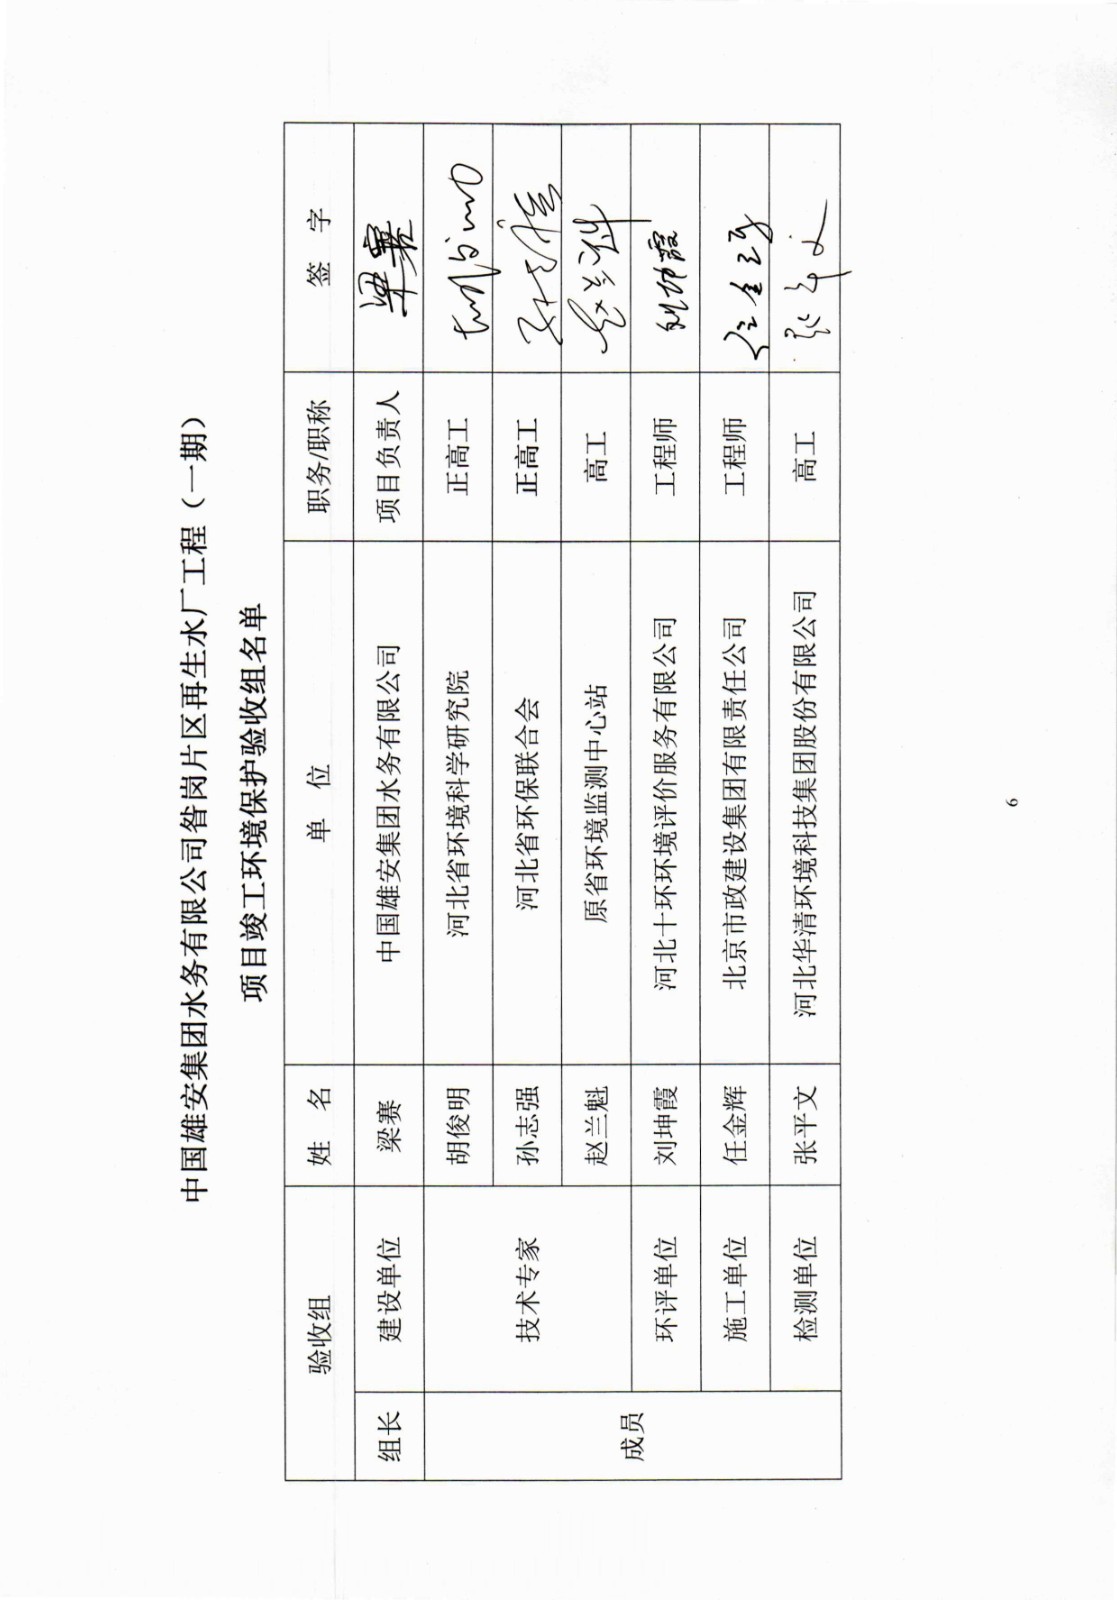 中国雄安集团水务有限公司昝岗片区再生水厂工程（一期）
项目竣工环境保护验收组名单
验收组 姓 名 单 位 职务/职称 签 字
组长 建设单位 梁赛 中国雄安集团水务有限公司 项目负责人 梁赛
成员 技术专家 胡俊明 河北省环境科学研究院 正高工
孙志强 河北省环保联合会 正高工 孙志强
赵兰魁 原省环境监测中心站 高工
环评单位 刘坤霞 河北十环环境评价服务有限公司 工程师 刘坤霞
施工单位 任金辉 北京市政建设集团有限责任公司 工程师
检测单位 张平文 河北华清环境科技集团股份有限公司 高工 张平文
6